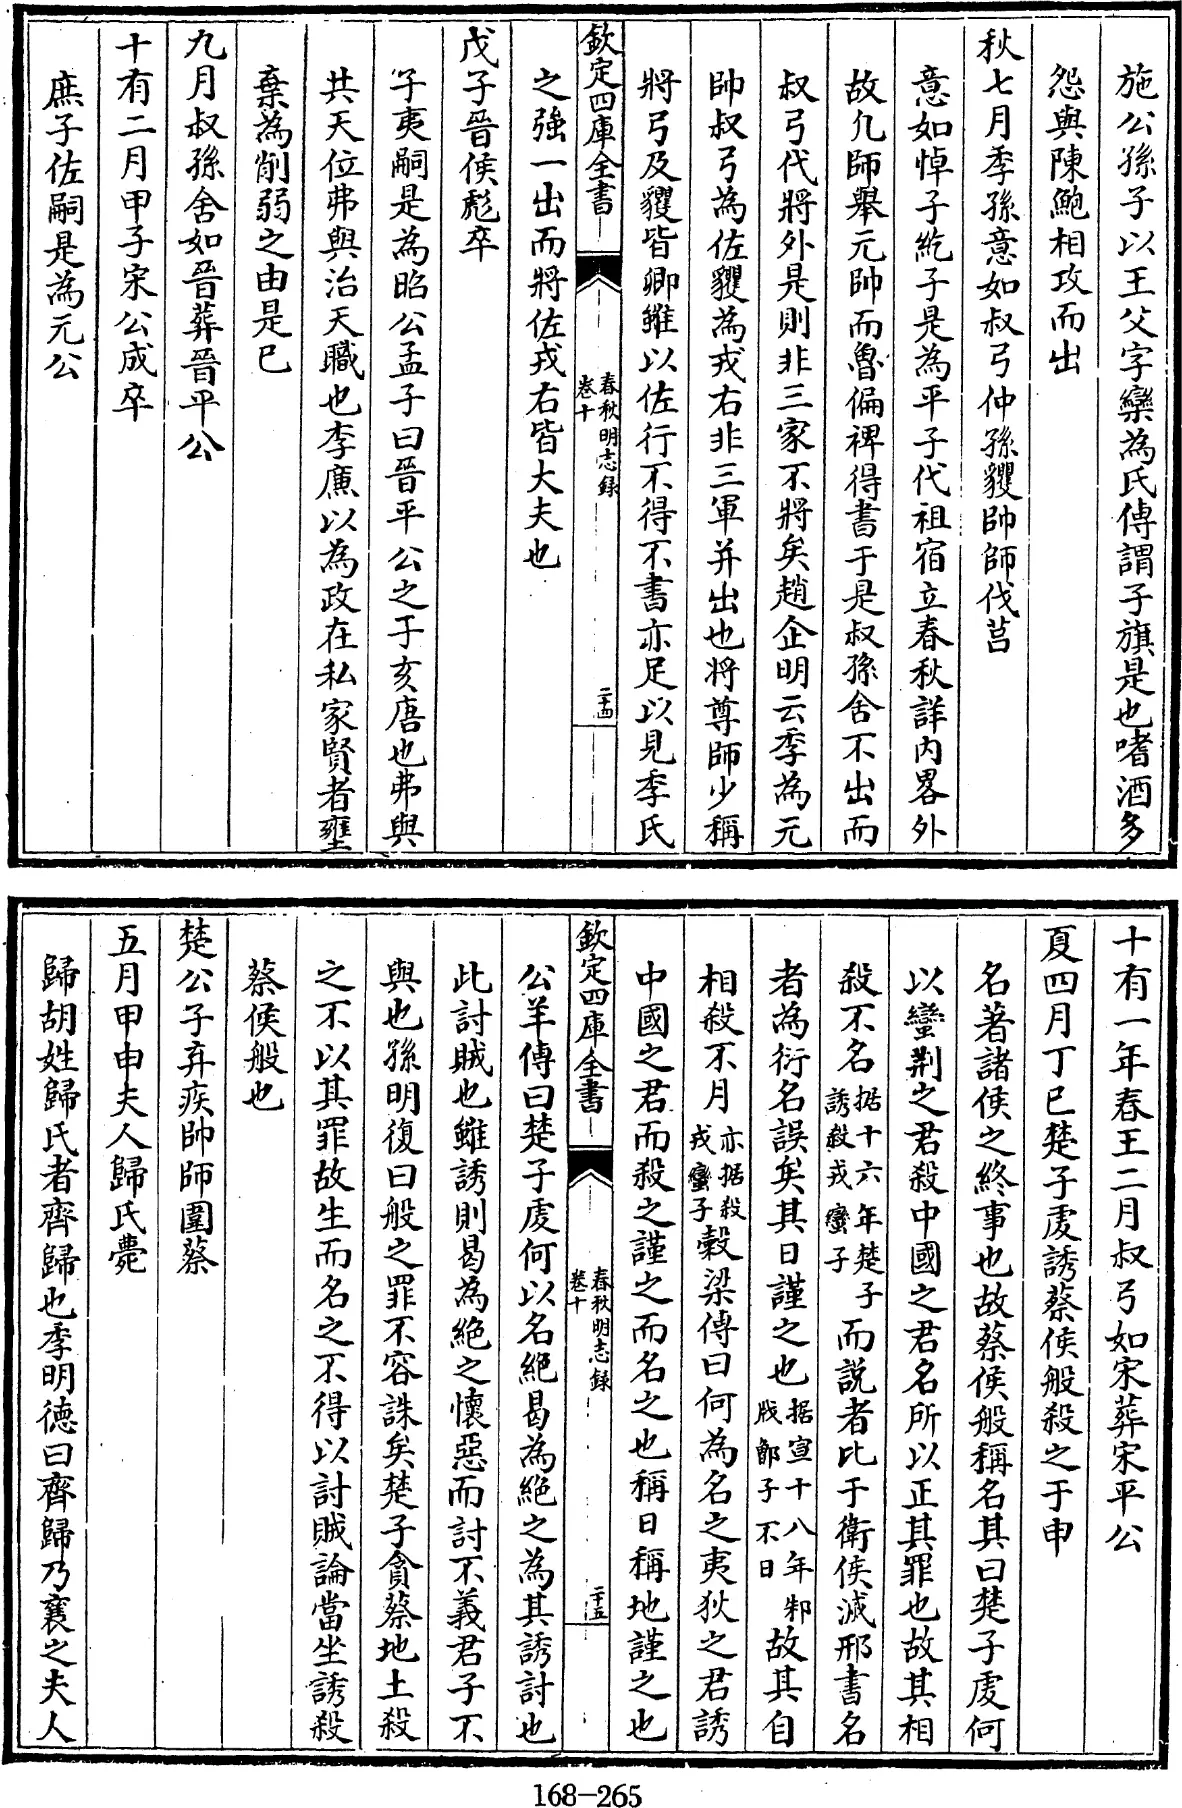 施公孫子以王父字欒為氏傳謂子旗是也嗜酒多
怨與陳鮑相攻而出
秋七月季孫意如叔弓仲孫貜帥師伐莒
意如悼子紇子是為平子代祖宿立春秋詳内畧外
故凡師舉元帥而魯偏裨得書于是叔孫舍不出而
叔弓代將外是則非三家不將矣趙企明云季為元
帥叔弓為佐貜為戎右非三軍并出也将尊師少稱
將弓及貜皆卿雖以佐行不得不書亦足以見季氏
欽定四庫全書
春秋明志録
卷十
二十四
之強一出而將佐戎右皆大夫也
戊子晉侯彪卒
子夷嗣是為昭公孟子曰晉平公之于亥唐也弗與
共天位弗與治天職也李廉以為政在私家賢者壅
棄為削弱之由是已
九月叔孫舍如晉葬晉平公
十有二月甲子宋公成卒
庶子佐嗣是為元公
十有一年春王二月叔弓如宋葬宋平公
夏四月丁巳楚子虔誘蔡侯般殺之于申
名著諸侯之終事也故蔡侯般稱名其曰楚子虔何
以蠻荆之君殺中國之君名所以正其罪也故其相
殺不名据十六年楚子誘殺戎蠻子而説者比于衛侯滅邢書名
者為衍名誤矣其日謹之也据宣十八年邾戕鄫子不日故其自
相殺不月亦据殺戎蠻子穀梁傳曰何為名之夷狄之君誘
中國之君而殺之謹之而名之也稱日稱地謹之也
欽定四庫全書
春秋明志録
卷十
二十五
公羊傳曰楚子虔何以名絶曷為絶之為其誘討也
此討賊也雖誘則曷為絶之懷惡而討不義君子不
與也孫明復曰般之罪不容誅矣楚子貪蔡地土殺
之不以其罪故生而名之不得以討賊論當坐誘殺
蔡侯般也
楚公子弃疾帥師圍蔡
五月甲申夫人歸氏薨
歸胡姓歸氏者齊歸也季明德曰齊歸乃襄之夫人
168-265